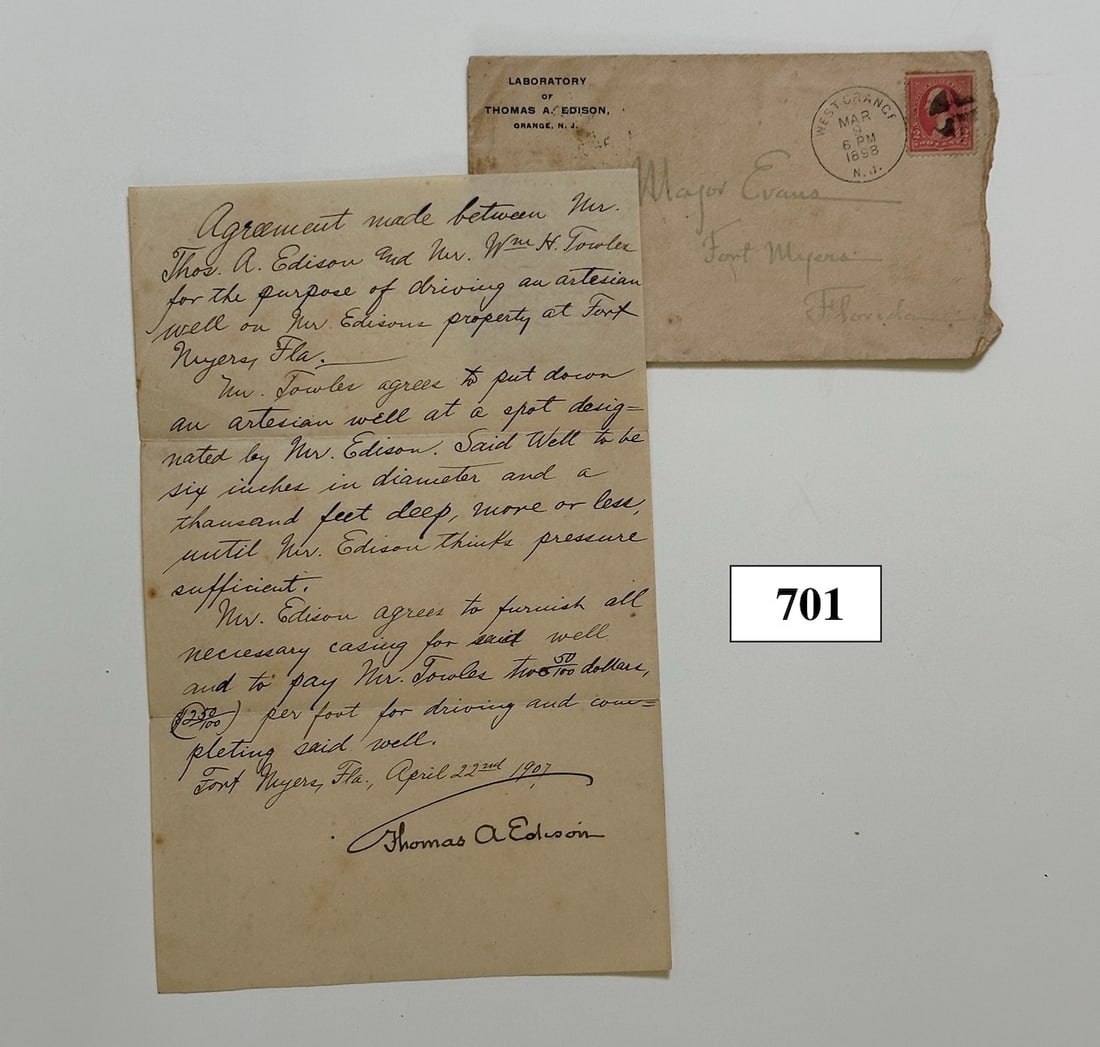 LABORATORY
OF
THOMAS A. EDISON,
ORANGE, N. J.
WEST ORANGE
MAR
9
6 PM
1898
N. J.
2 TWO CENTS 2
Major Evans
Fort Myers
Florida
Agreement made between Mr.
Thos. A. Edison and Mr. Wm H. Towles
for the purpose of driving an artesian
well on Mr. Edisons property at Fort
Myers, Fla.
Mr. Towles agrees to put down
an artesian well at a spot desig=
nated by Mr. Edison. Said Well to be
six inches in diameter and a
thousand feet deep, more or less,
until Mr. Edison thinks pressure
sufficient.
Mr. Edison agrees to furnish all
necessary casing for said well
and to pay Mr. Towles two 50/100 dollars,
($2 50/100) per foot for driving and com=
pleting said well.
Fort Myers, Fla., April 22nd 1907
Thomas A Edison
701